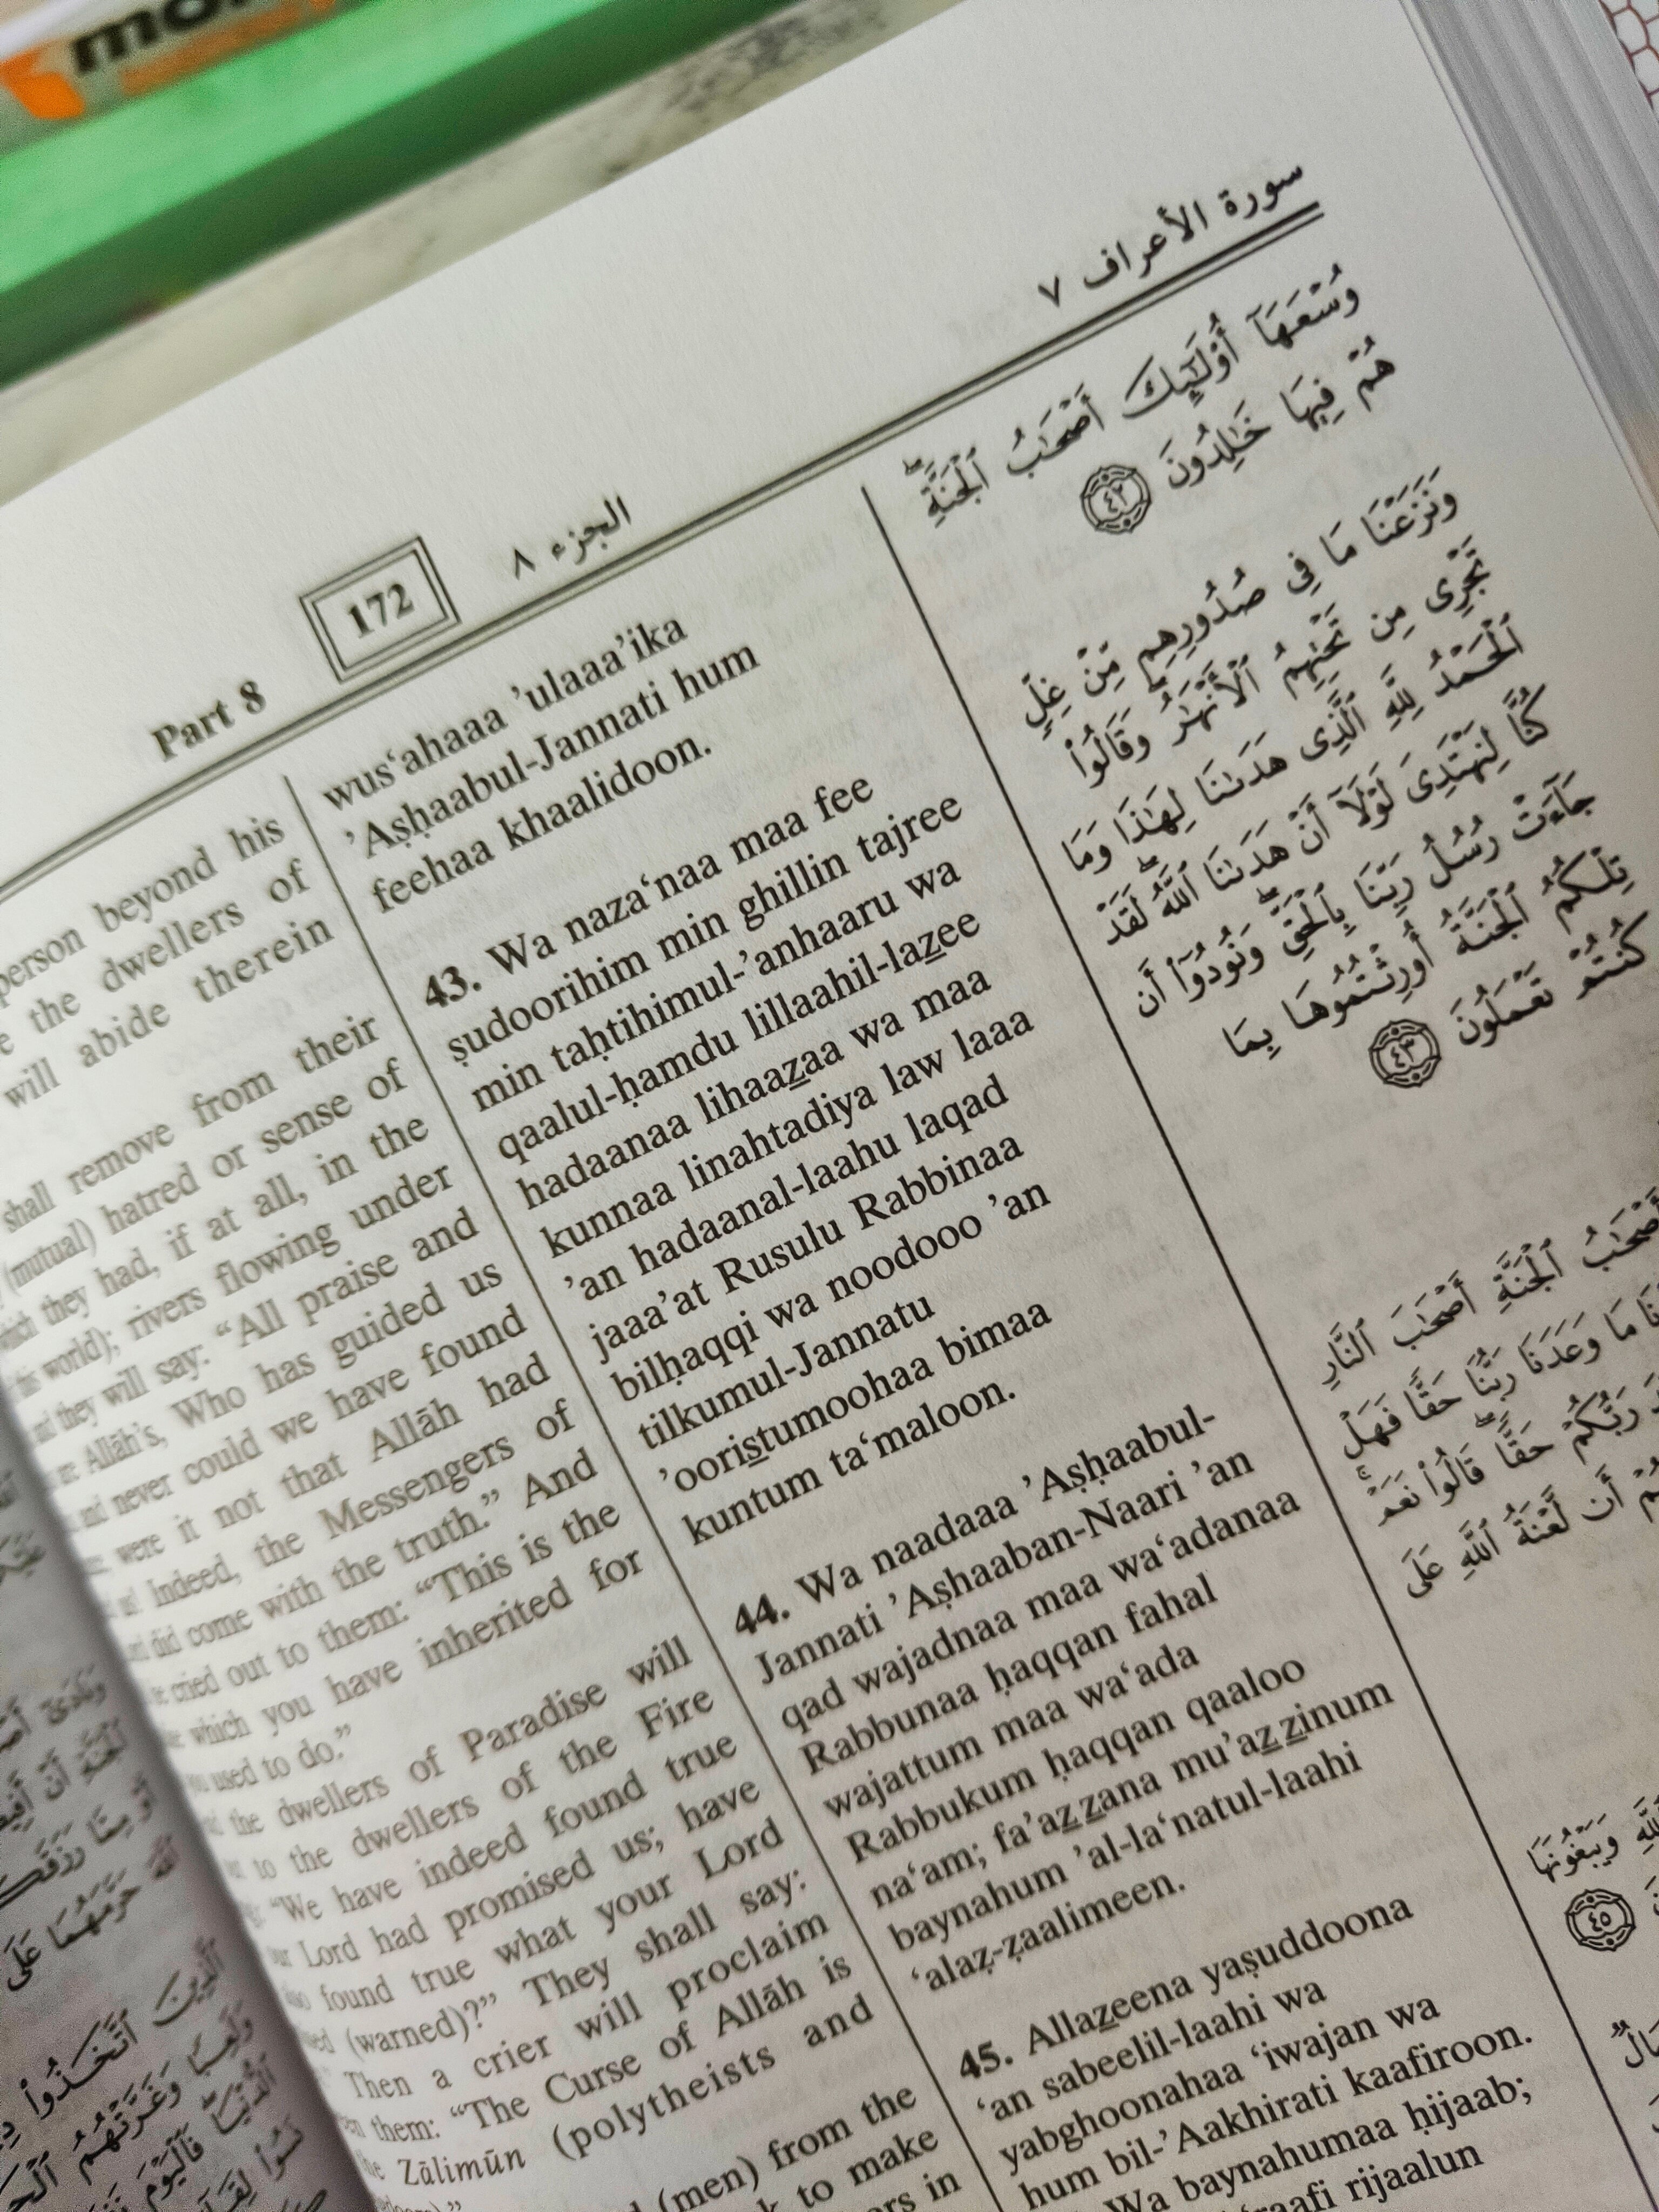 mor
Part 8
172
الجزء ٨
سورة الأعراف ٧
person beyond his
the dwellers of
will abide therein
shall remove from their
(mutual) hatred or sense of
which they had, if at all, in the
this world); rivers flowing under
and they will say: “All praise and
Allāh’s, Who has guided us
and never could we have found
were it not that Allāh had
us! Indeed, the Messengers of
did come with the truth.” And
cried out to them: “This is the
which you have inherited for
used to do.”
the dwellers of Paradise will
to the dwellers of the Fire
“We have indeed found true
Lord had promised us; have
found true what your Lord
(warned)?” They shall say:
Then a crier will proclaim
them: “The Curse of Allāh is
Zālimūn (polytheists and
(men) from the
to make
in
wus‘ahaaa ’ulaaa’ika
’Aṣḥaabul-Jannati hum
feehaa khaalidoon.
43. Wa naza‘naa maa fee
ṣudoorihim min ghillin tajree
min taḥtihimul-’anhaaru wa
qaalul-ḥamdu lillaahil-lazee
hadaanaa lihaazaa wa maa
kunnaa linahtadiya law laaa
’an hadaanal-laahu laqad
jaaa’at Rusulu Rabbinaa
bilḥaqqi wa noodooo ’an
tilkumul-Jannatu
’ooristumoohaa bimaa
kuntum ta‘maloon.
44. Wa naadaaa ’Aṣḥaabul-
Jannati ’Aṣhaaban-Naari ’an
qad wajadnaa maa wa‘adanaa
Rabbunaa ḥaqqan fahal
wajattum maa wa‘ada
Rabbukum ḥaqqan qaaloo
na‘am; fa’azzana mu’azzinum
baynahum ’al-la‘natul-laahi
‘alaẓ-ẓaalimeen.
45. Allazeena yaṣuddoona
‘an sabeelil-laahi wa
yabghoonahaa ‘iwajan wa
hum bil-’Aakhirati kaafiroon.
Wa baynahumaa ḥijaab;
rijaalun
وُسْعَهَآ أُوْلَـٰٓئِكَ أَصْحَـٰبُ ٱلْجَنَّةِ ۖ
هُمْ فِيهَا خَـٰلِدُونَ ٤٢
وَنَزَعْنَا مَا فِى صُدُورِهِم مِّنْ غِلٍّ
تَجْرِى مِن تَحْتِهِمُ ٱلْأَنْهَـٰرُ ۖ وَقَالُوا۟
ٱلْحَمْدُ لِلَّهِ ٱلَّذِى هَدَىٰنَا لِهَـٰذَا وَمَا
كُنَّا لِنَهْتَدِىَ لَوْلَآ أَنْ هَدَىٰنَا ٱللَّهُ ۖ لَقَدْ
جَآءَتْ رُسُلُ رَبِّنَا بِٱلْحَقِّ ۖ وَنُودُوٓا۟ أَن
تِلْكُمُ ٱلْجَنَّةُ أُورِثْتُمُوهَا بِمَا
كُنتُمْ تَعْمَلُونَ ٤٣
أَصْحَـٰبُ ٱلْجَنَّةِ أَصْحَـٰبَ ٱلنَّارِ
مَا وَعَدَنَا رَبُّنَا حَقًّا فَهَلْ
رَبُّكُمْ حَقًّا ۖ قَالُوا۟ نَعَمْ ۚ
أَن لَّعْنَةُ ٱللَّهِ عَلَى
ٱللَّهِ وَيَبْغُونَهَا
٤٥
أَنْ
رَزَقَكُمُ
ٱللَّهَ حَرَّمَهُمَا عَلَى
ٱلَّذِينَ ٱتَّخَذُوا۟
وَلَعِبًا وَغَرَّتْهُمُ
ٱلدُّنْيَا ۚ فَٱلْيَوْمَ
نَسُوا۟ لِقَآءَ